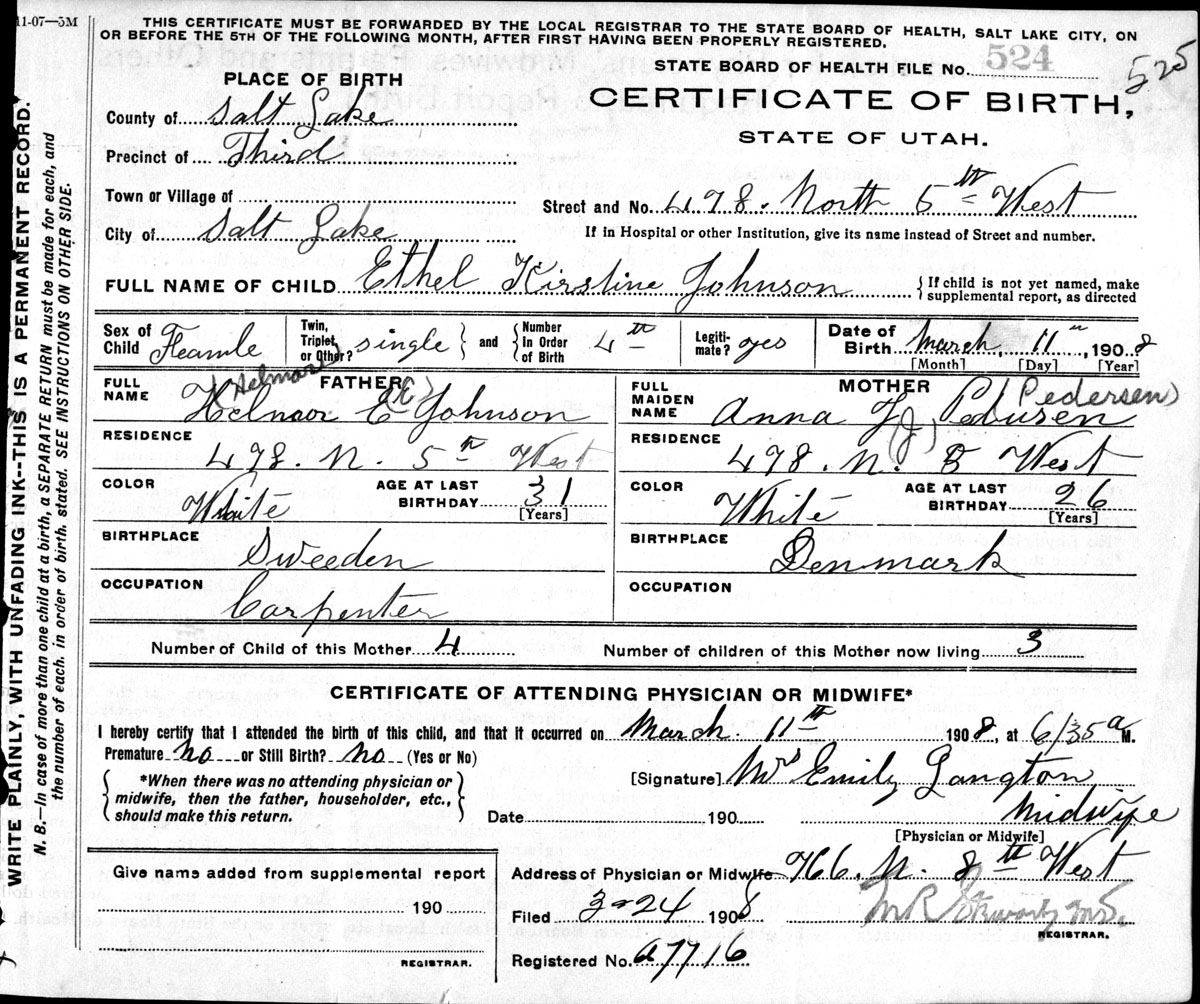 11-07—3M
THIS CERTIFICATE MUST BE FORWARDED BY THE LOCAL REGISTRAR TO THE STATE BOARD OF HEALTH, SALT LAKE CITY, ON
OR BEFORE THE 5TH OF THE FOLLOWING MONTH, AFTER FIRST HAVING BEEN PROPERLY REGISTERED.
STATE BOARD OF HEALTH FILE No. 524
525
PLACE OF BIRTH
CERTIFICATE OF BIRTH,
STATE OF UTAH.
County of Salt Lake
Precinct of Third
Town or Village of
City of Salt Lake
Street and No. 498. North 5th West
If in Hospital or other Institution, give its name instead of Street and number.
FULL NAME OF CHILD Ethel Kirstine Johnson
{If child is not yet named, make supplemental report, as directed
Sex of Child Feamle
Twin, Triplet, or Other? single } and { Number In Order of Birth 4th
Legitimate? yes
Date of Birth March, 11", 1908
[Month] [Day] [Year]
FATHER
FULL NAME Helmar E Johnson
(Helmar) (C)
RESIDENCE 498. N. 5th West
COLOR White
AGE AT LAST BIRTHDAY 31
[Years]
BIRTHPLACE Sweeden
OCCUPATION Carpenter
MOTHER
FULL MAIDEN NAME Anna J Pedersen
(J) (Pedersen)
RESIDENCE 498. N. 5 West
COLOR White
AGE AT LAST BIRTHDAY 26
[Years]
BIRTHPLACE Denmark
OCCUPATION
Number of Child of this Mother 4
Number of children of this Mother now living 3
CERTIFICATE OF ATTENDING PHYSICIAN OR MIDWIFE*
I hereby certify that I attended the birth of this child, and that it occurred on March. 11th 1908, at 6/35 a M.
Premature no or Still Birth? no (Yes or No)
{*When there was no attending physician or
midwife, then the father, householder, etc.,
should make this return.}
[Signature] Mrs Emily Langton
Date 190
Midwife
[Physician or Midwife]
Give name added from supplemental report
190
REGISTRAR.
Address of Physician or Midwife 766. N. 8th West
Filed 3-24 1908
M R Stewart M.D.
REGISTRAR.
Registered No. a7716
WRITE PLAINLY, WITH UNFADING INK--THIS IS A PERMANENT RECORD.
N. B.—In case of more than one child at a birth, a SEPARATE RETURN must be made for each, and
the number of each, in order of birth, stated. SEE INSTRUCTIONS ON OTHER SIDE.